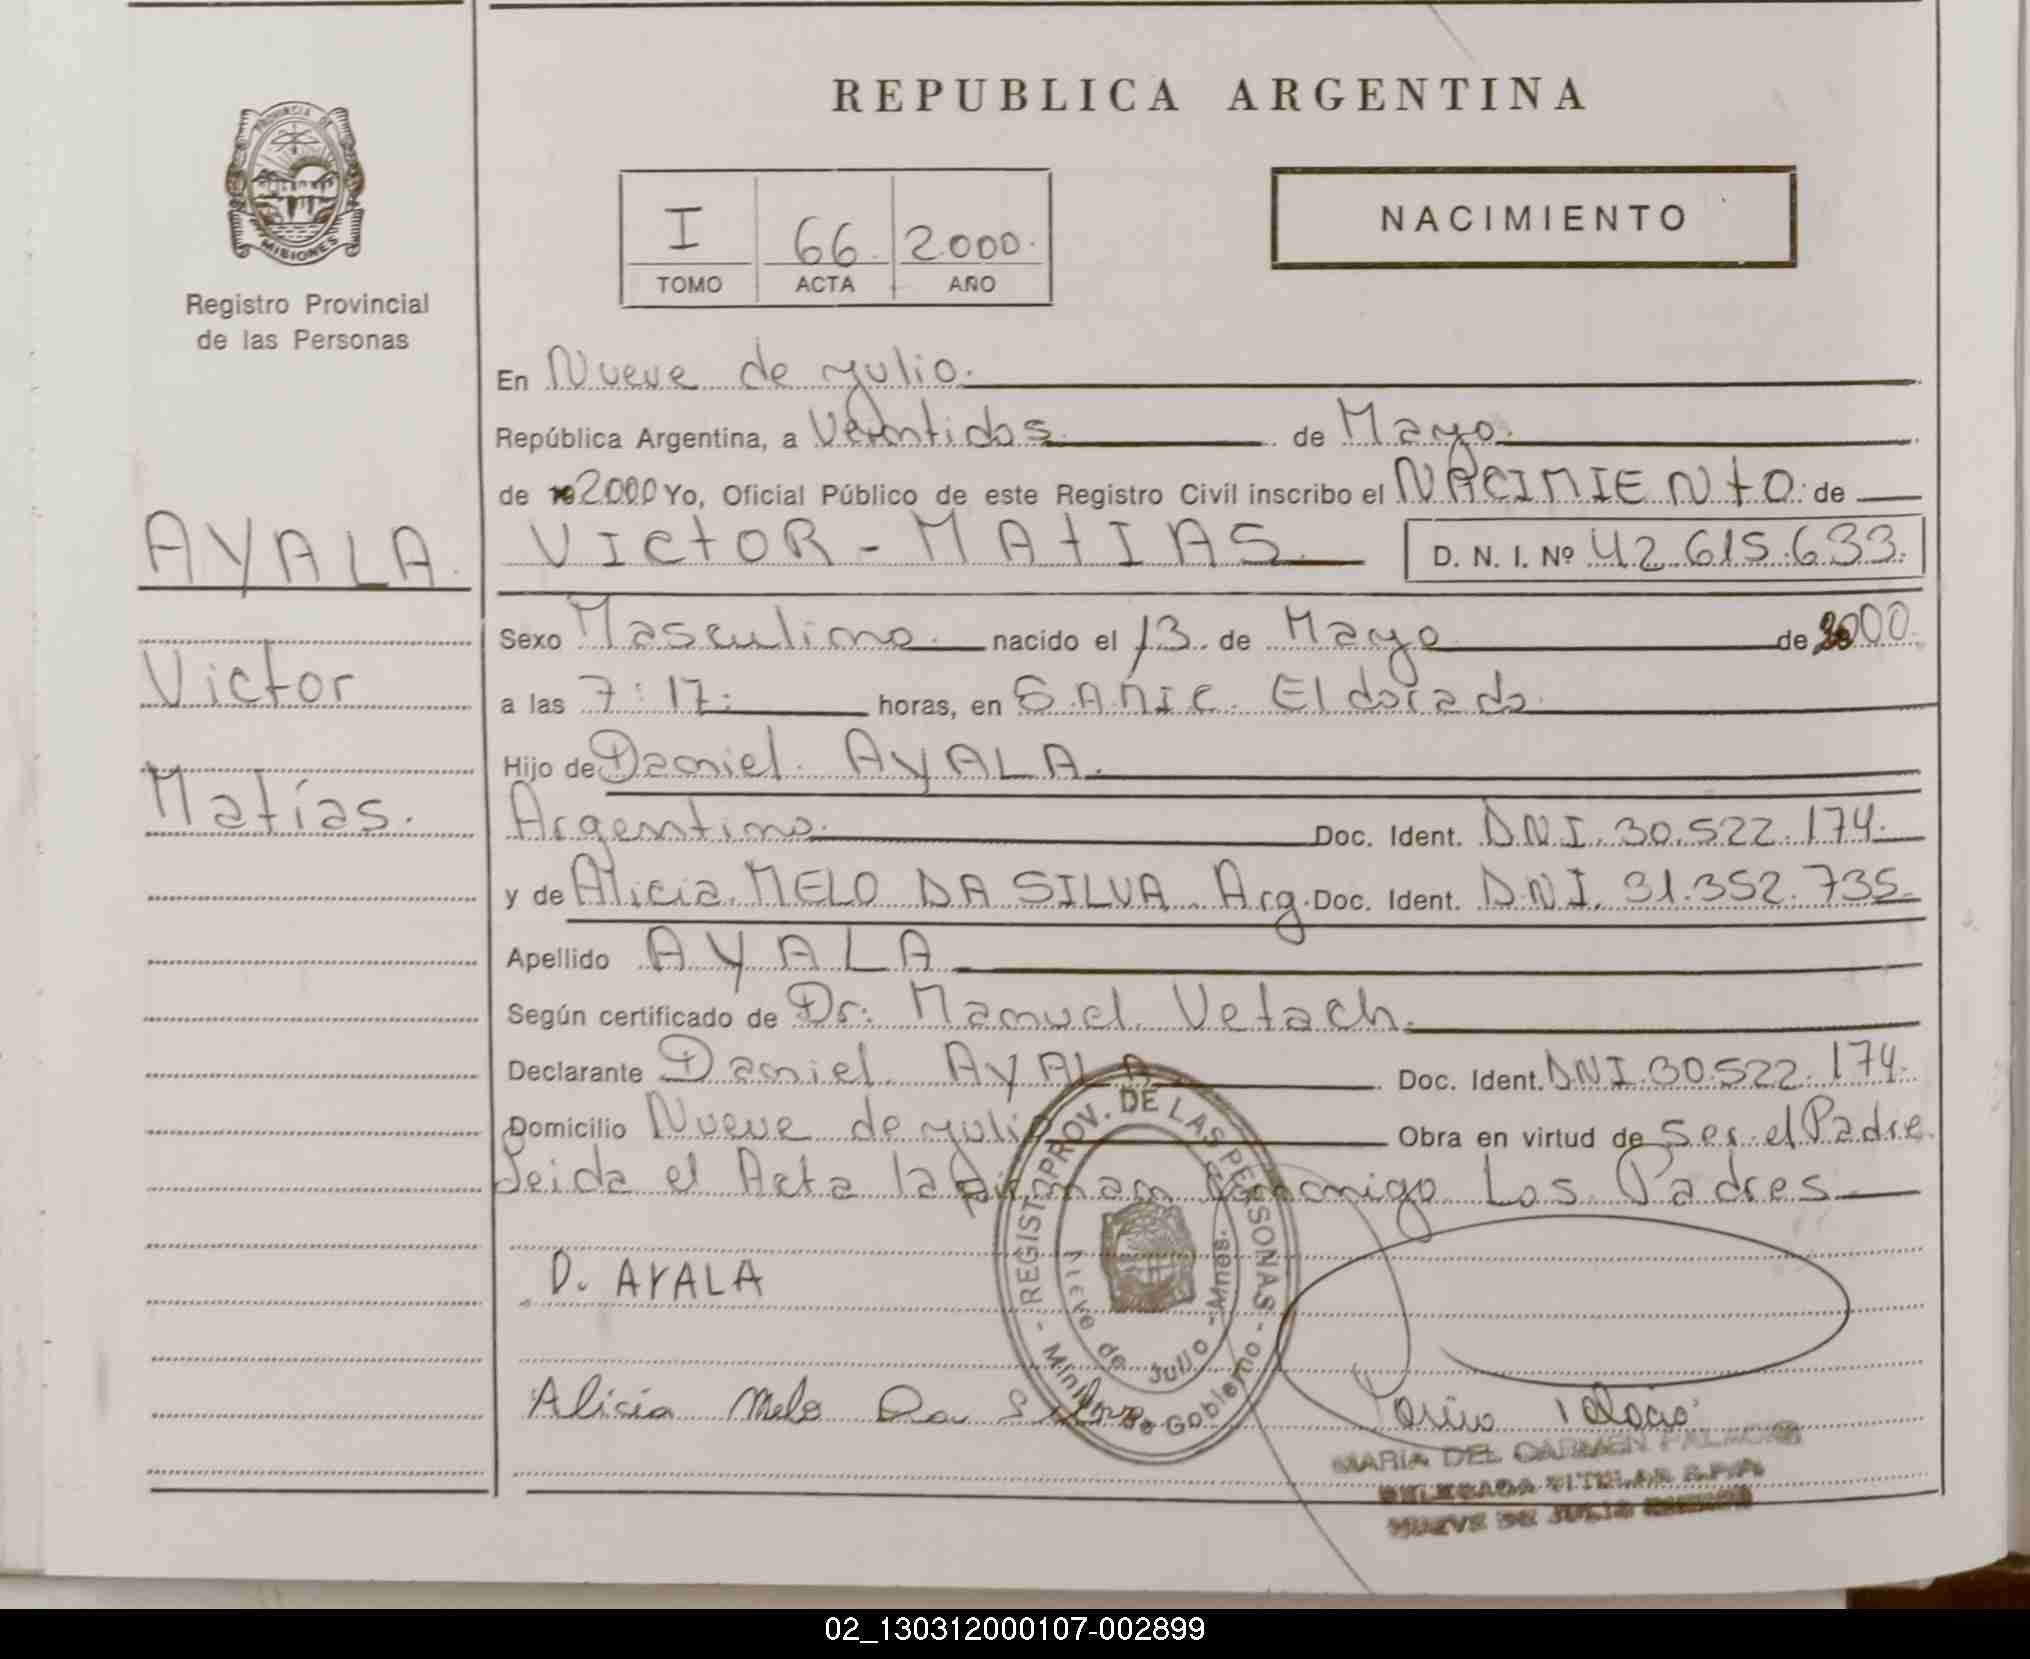 REPUBLICA ARGENTINA
PROVINCIA DE
MISIONES
Registro Provincial
de las Personas
I 66. 2.000.
TOMO ACTA AÑO
NACIMIENTO
En Nueve de yulio.
República Argentina, a Veintidos. de Mayo.
de 2000 Yo, Oficial Público de este Registro Civil inscribo el NACIMIENtO. de
VIctOR - MAtIAS. D. N. I. Nº 42.615.633.
AYALA.
Victor
Matías.
Sexo Masculino. nacido el 13. de Mayo de 2000.
a las 7:17. horas, en SAMIC. Eldorado.
Hijo de Daniel. AYALA.
Argentino. Doc. Ident. DNI. 30.522.174.
y de Alicia. MELO DA SILVA. Arg. Doc. Ident. DNI. 31.352.735
Apellido AYALA
Según certificado de Dr. Manuel Vetach.
Declarante Daniel AYALA Doc. Ident. DNI.30.522.174.
Domicilio Nueve de yulio Obra en virtud de ser el Padre.
Leida el Acta la Firman conmigo Los Padres
D. AYALA
Alicia Melo Da Silva
REGIST. PROV. DE LAS PERSONAS
- Minist. de Gobierno -
Nueve de Julio - Mnes.
MARIA DEL CARMEN PALACIO
DELEGADA TITULAR R.P.P.
NUEVE DE JULIO
02_130312000107-002899